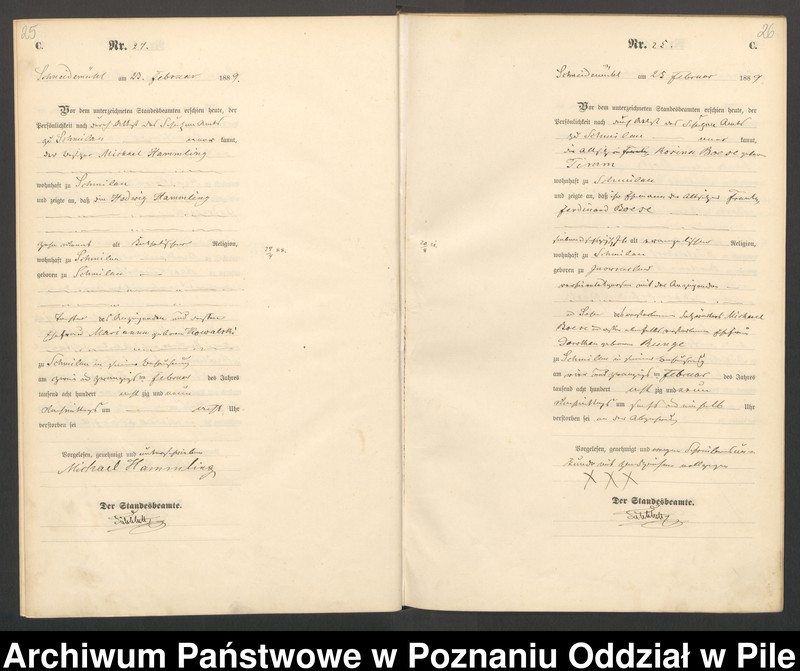 25
C.
Nr. 24.
Schneidemühl am 23. Februar 1889.
Vor dem unterzeichneten Standesbeamten erschien heute, der
Persönlichkeit nach durch Attest des Schulzen Amts
zu Schmilau kannt,
der Besitzer Michael Hammling
wohnhaft zu Schmilau
und zeigte an, daß die Hedwig Hammling
alt katholischer Religion,
wohnhaft zu Schmilau
geboren zu Schmilau
Tochter des Anzeigenden und dessen
Ehefrau Marianna geboren Kowalski
zu Schmilau in seiner Behausung
am zwei und zwanzigsten Februar des Jahres
tausend acht hundert acht zig und neun
Nachmittags um acht Uhr
verstorben sei
Vorgelesen, genehmigt und unterschrieben
Michael Hammling
Der Standesbeamte.
26
Nr. 25. C.
Schneidemühl am 25 Februar 1889
Vor dem unterzeichneten Standesbeamten erschien heute, der
Persönlichkeit nach durch Attest des Schulzen Amts
zu Schmilau kannt,
die Rosina Boese geboren
Timm
wohnhaft zu Schmilau
und zeigte an, daß ihr Ehemann der Altsitzer
Ferdinand Boese
alt evangelischer Religion,
wohnhaft zu Schmilau
geboren zu
verheiratet gewesen mit der Anzeigenden
Sohn des verstorbenen Michael
Boese verstorbenen Ehefrau
Dorothea geborene Runge
zu Schmilau in seiner Behausung
am vier und zwanzigsten Februar des Jahres
tausend acht hundert acht zig und neun
Nachmittags um Uhr
verstorben sei an der Abzehrung
Vorgelesen, genehmigt und wegen Schreibensun-
kunde mit Handzeichen vollzogen
XXX
Der Standesbeamte.
Archiwum Państwowe w Poznaniu Oddział w Pile